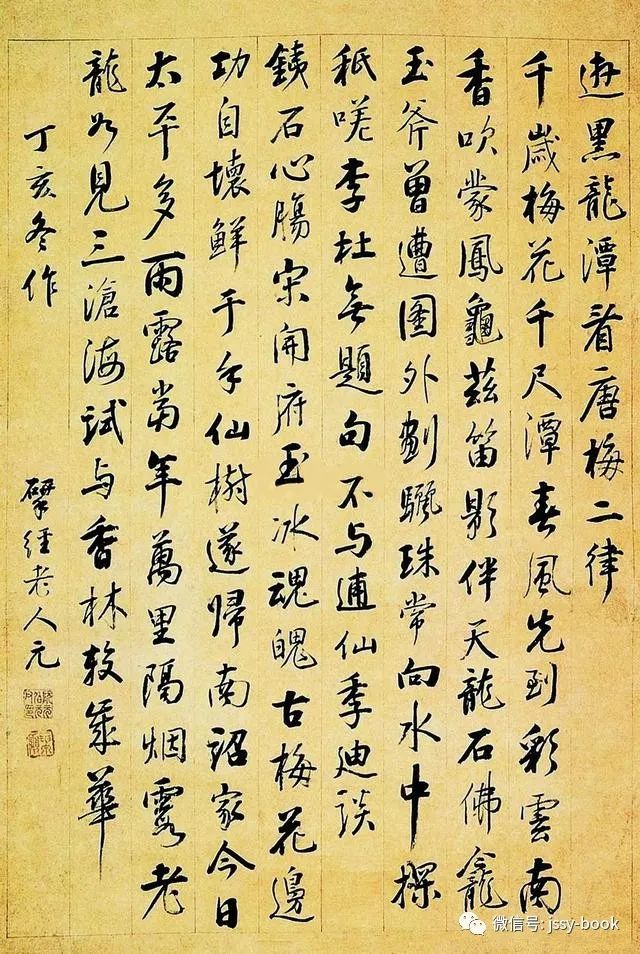 遊黑龍潭看唐梅二律
千歲梅花千尺潭春風先到彩雲南
香吹蒙鳳龜茲笛影伴天龍石佛龕
玉斧曾遭圖外劃驪珠常向水中探
秖嗟李杜無題句不与逋仙季迪談
銕石心腸宋開府玉冰魂魄古梅花邊
功自壞鮮于手仙樹遂歸南詔家今日
太平多雨露當年萬里隔烟霞老
龍如見三滄海試与香林較歲華
丁亥冬作
揅經老人元
微信号: jssy-book